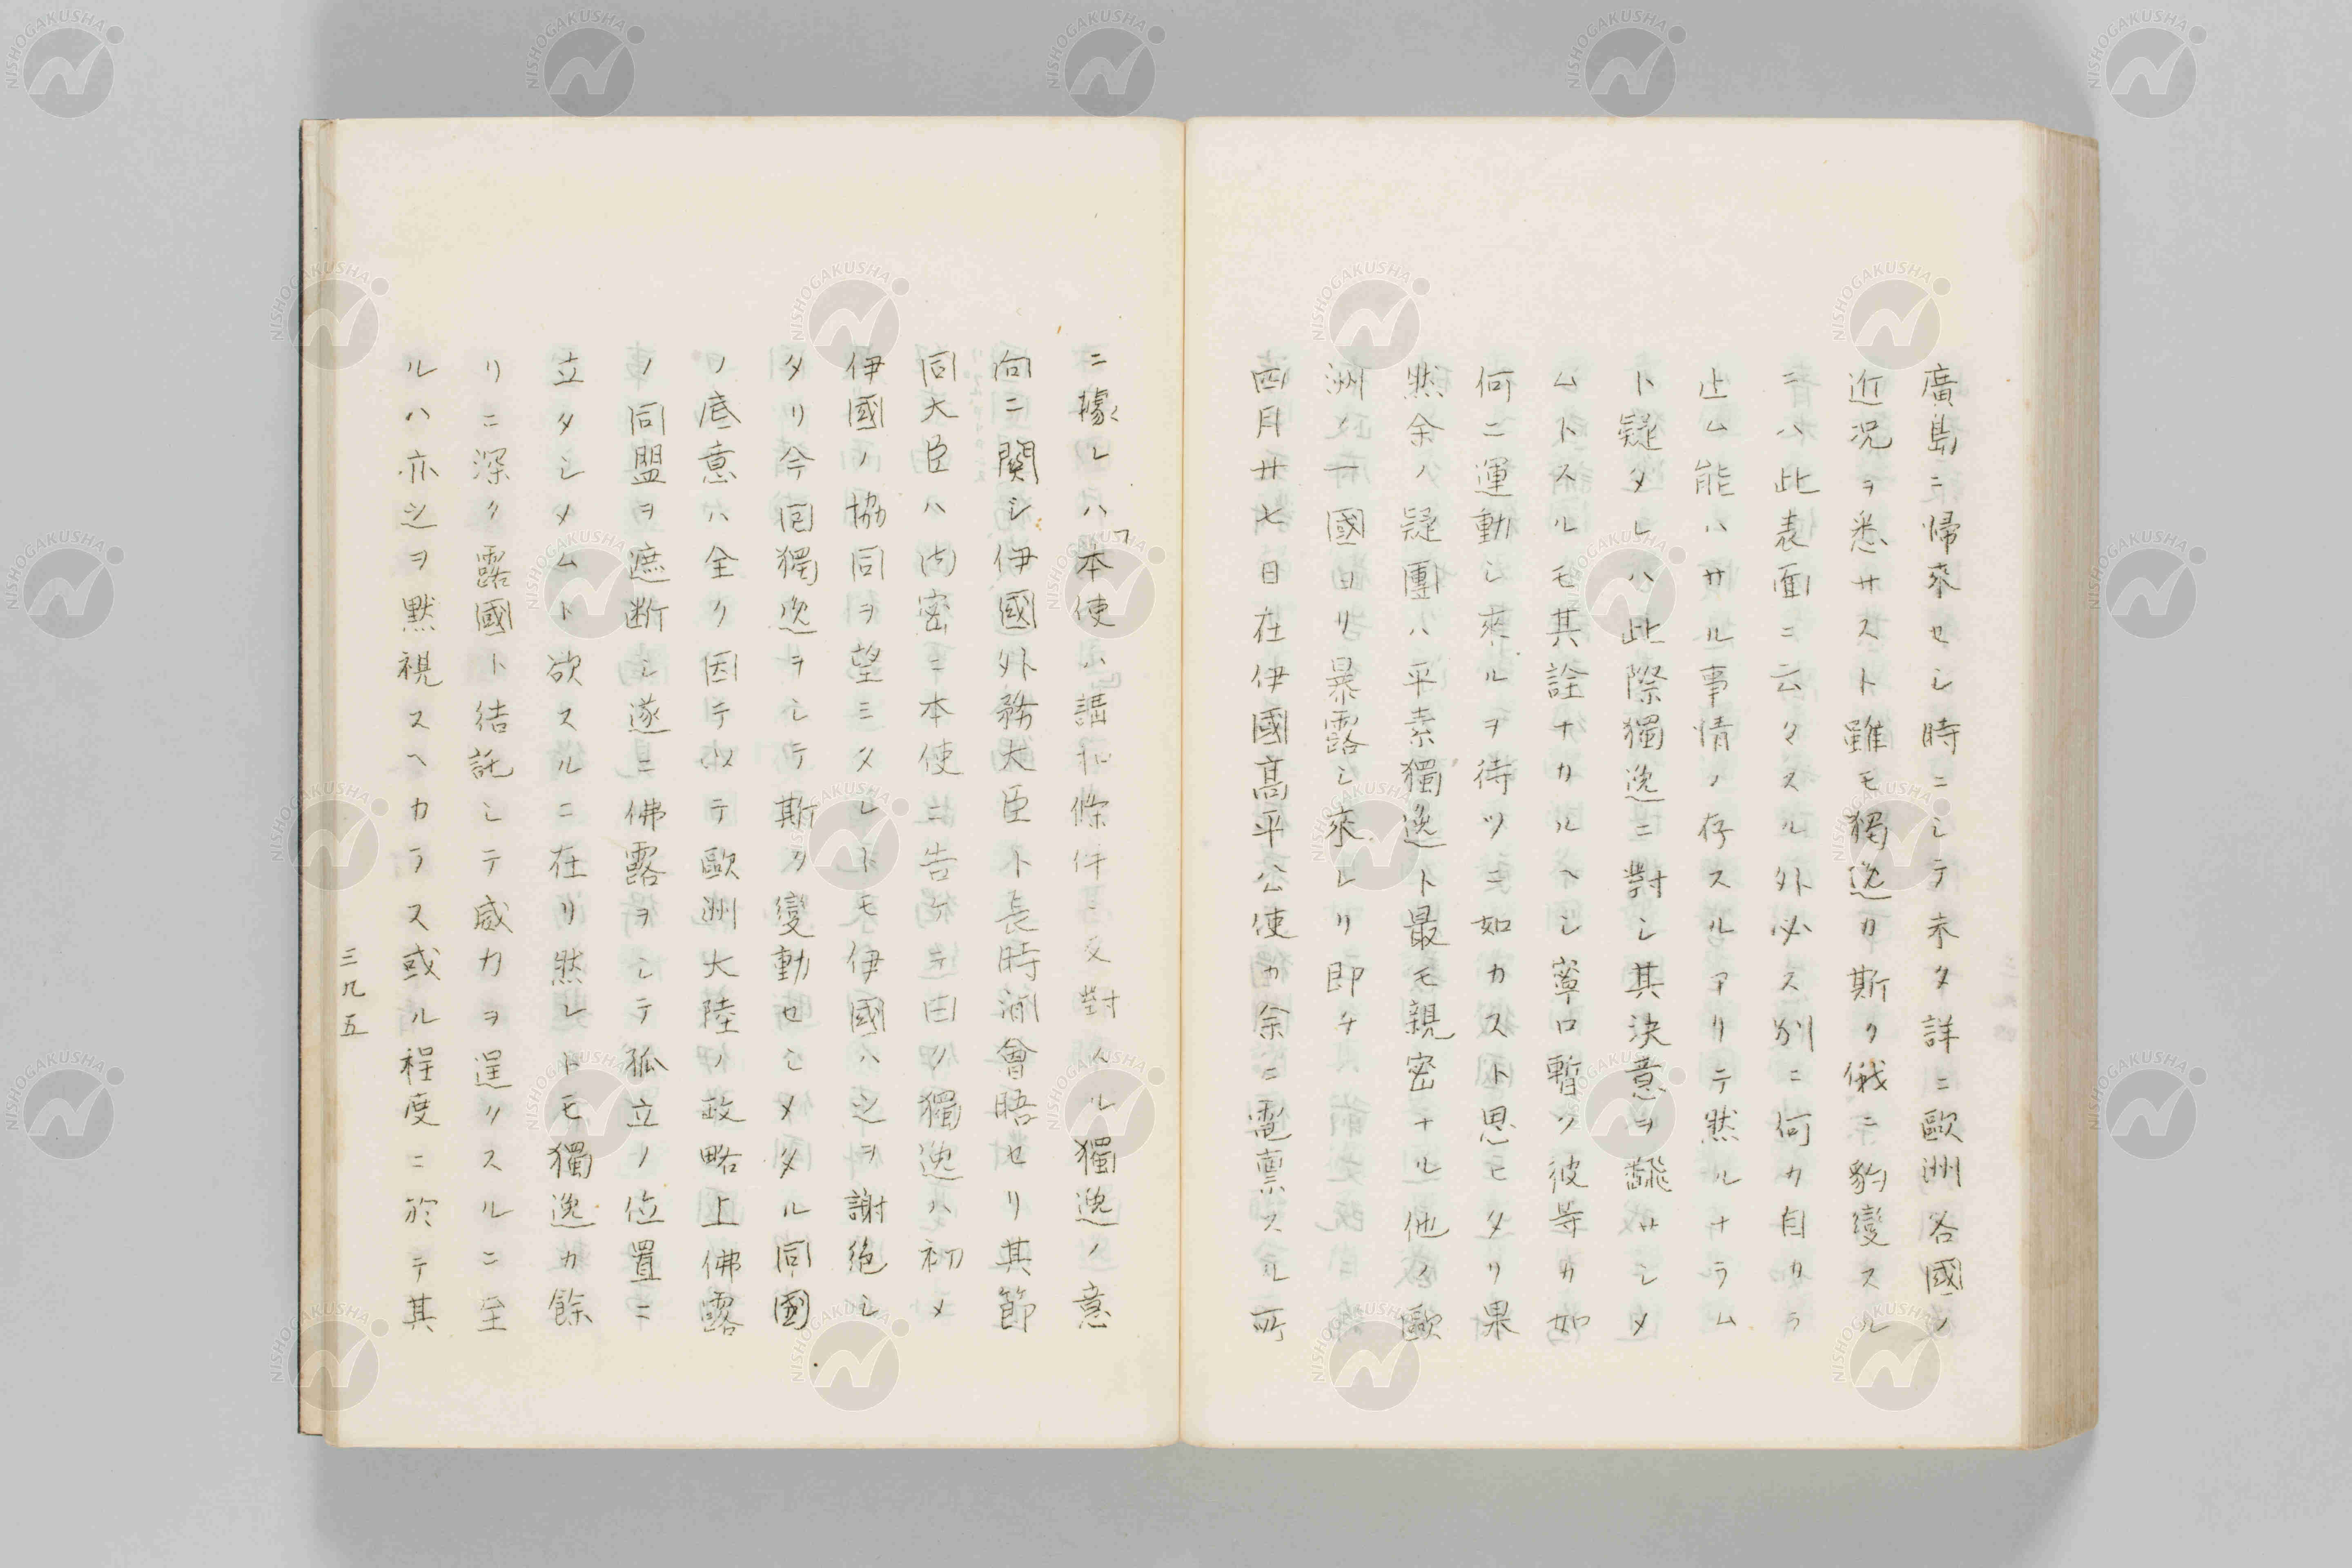 廣島ニ帰來セシ時ニシテ未タ詳ニ歐洲各國ノ
近況ヲ悉サスト雖モ獨逸カ斯ク俄ニ豹變スル
ニハ此表面ニ云々スル外必ス別ニ何カ自カラ
止ム能ハサル事情ノ存スルアリテ然ルナラム
ト疑タレハ此際獨逸ニ對シ其決意ヲ飜サシメ
ムトスルモ其詮ナカルヘシ寧ロ暫ク彼等カ如
何ニ運動シ來ルヲ待ツニ如カスト思ヒタリ果
然余ノ疑團ハ平素獨逸ト最モ親密ナル他ノ歐
洲ノ一國ヨリ暴露シ來レリ即チ
四月廿七日在伊國髙平公使カ余ニ電稟スル所
ニ據レハ「本使ハ講和條件ニ反對スル獨逸ノ意
向ニ関シ伊國外務大臣ト長時間會晤セリ其節
同大臣ハ内密ニ本使ニ告ケテ曰ク獨逸ハ初メ
伊國ノ協同ヲ望ミタレトモ伊國ハ之ヲ謝絶シ
タリ今回獨逸ヲシテ斯ク變動セシメタル同國
ノ底意ハ全ク因テ以テ歐洲大陸ノ政略上佛露
ノ同盟ヲ遮断シ遂ニ佛露ヲシテ孤立ノ位置ニ
立タシメムト欲スルニ在リ然レトモ獨逸カ餘
リニ深ク露國ト結託シテ威力ヲ逞クスルニ至
ルハ亦之ヲ黙視スヘカラス或ル程度ニ於テ其
三九五
NISHOGAKUSHA